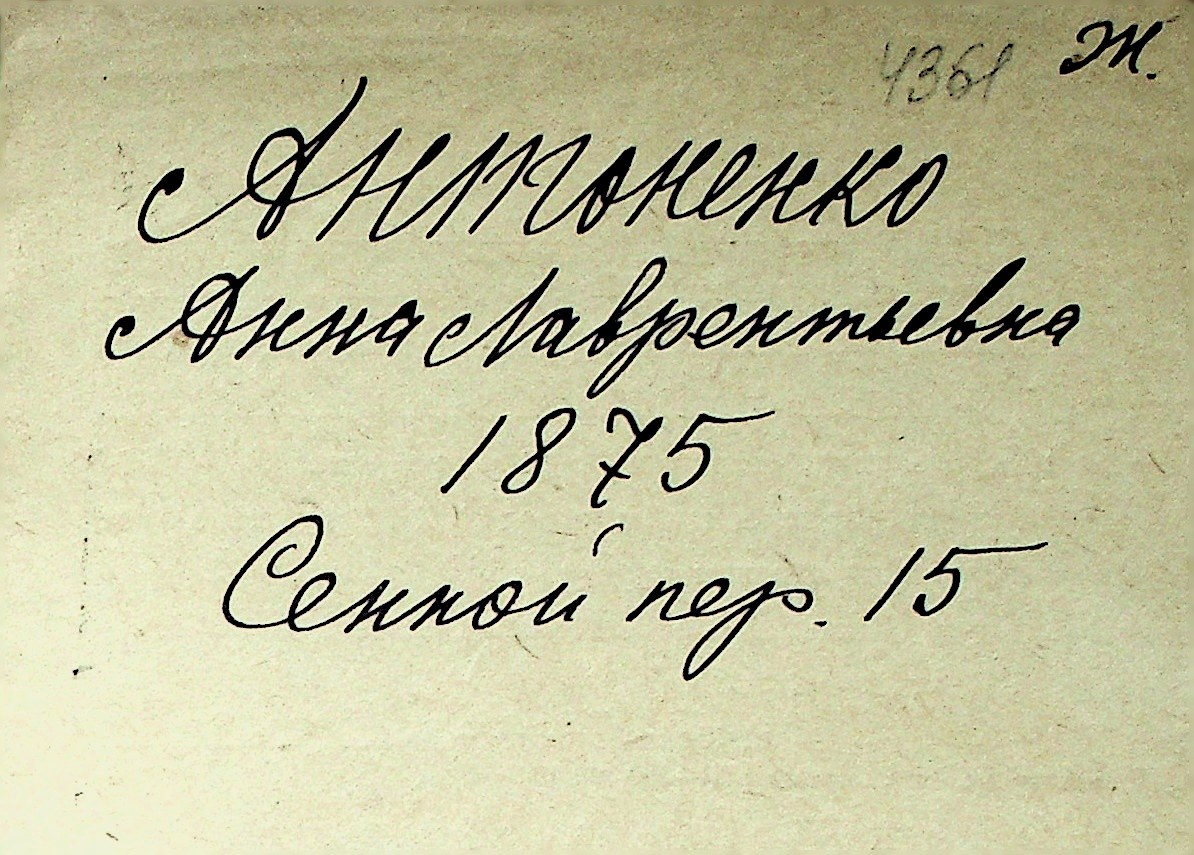 4361 Ж.
Антоненко
Анна Лаврентьевна
1875
Сенной пер. 15